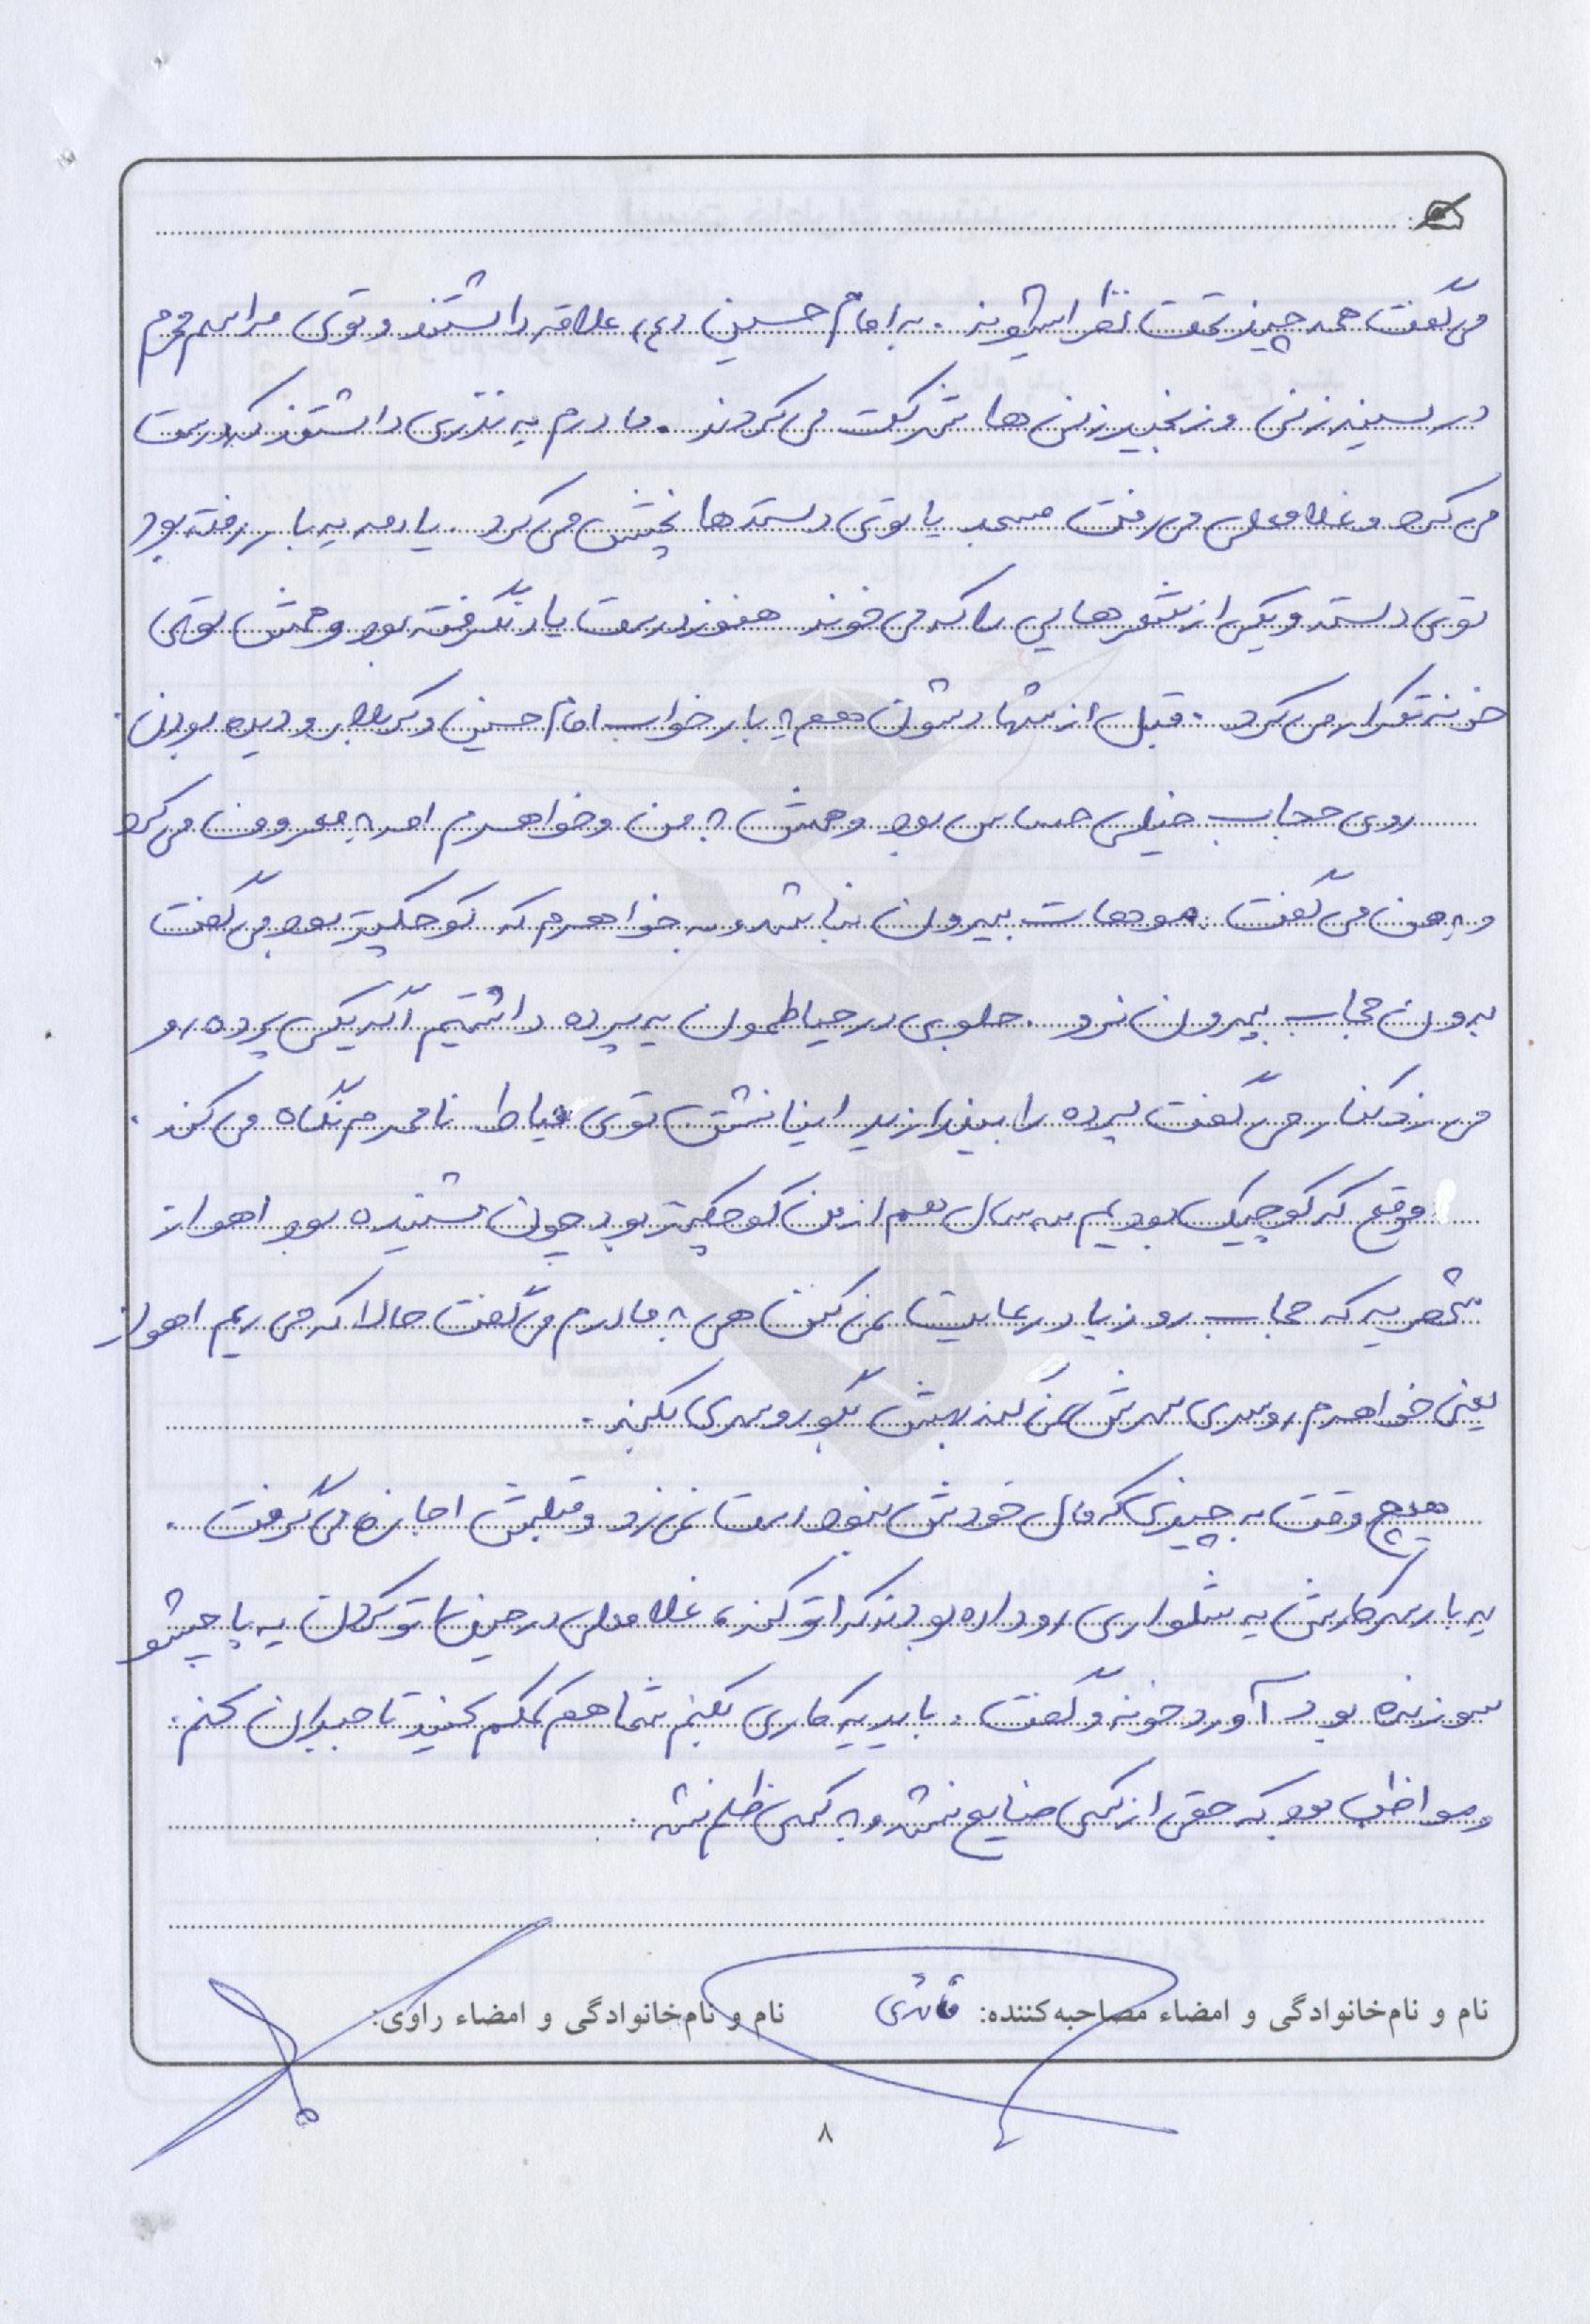 می‌گفت همه چیز تحت نظر ایشونه. به امام حسین (ع) علاقه داشتند و توی مراسم محرم
در سینه زنی و زنجیرزنی ها شرکت می‌کردند. مادرم یه نذری داشتند که درست
می‌کرد و غلامعلی می‌رفت مسجد یا توی دسته ها پخش می‌کرد. یادمه یه بار رفته بود
توی دسته و یکی از شعرهایی را که می‌خوند هنوز درست یاد نگرفته بود و همش توی
خونه تکرار می‌کرد. قبل از شهادتشون هم یه بار خواب امام حسین و کربلا رو دیده بودن.
روی حجاب خیلی حساس بود و همش به من و خواهرم امر به معروف می‌کرد
و به من می‌گفت: موهات بیرون نباشه و به خواهرم که کوچکتر بود می‌گفت
بدون حجاب بیرون نرو. جلوی در حیاطمون یه پرده داشتیم اگه یکی پرده رو
می‌زد کنار می‌گفت پرده را بیندازید اینا نشتن توی حیاط نامحرم نگاه می‌کند.
موقع که کوچیک بودیم سه سال هم از من کوچکتر بود چون شنیده بود اهواز
شهریه که حجاب رو زیاد رعایت نمی‌کنن هی به مادرم می‌گفت حالا که می ریم اهواز
یعنی خواهرم روسری سرش نمی‌کنه بهش بگو روسری بکنه.
هیچ وقت به چیزی که مال خودش نبود دست نمی‌زد و قبلش اجازه می‌گرفت.
یه بار سر کارش یه شلواری رو داده بودند که اتو کنه، غلامعلی در حین اتو کردن یه پاچشو
سوزنده بود آورد خونه و گفت: باید یه کاری بکنم شما هم کمکم کنید تا جبران کنم.
و مواظب بود که حقی از کسی ضایع نشه و به کسی ظلم نشه.
نام و نام‌خانوادگی و امضاء مصاحبه‌کننده:
نام و نام‌خانوادگی و امضاء راوی:
۸